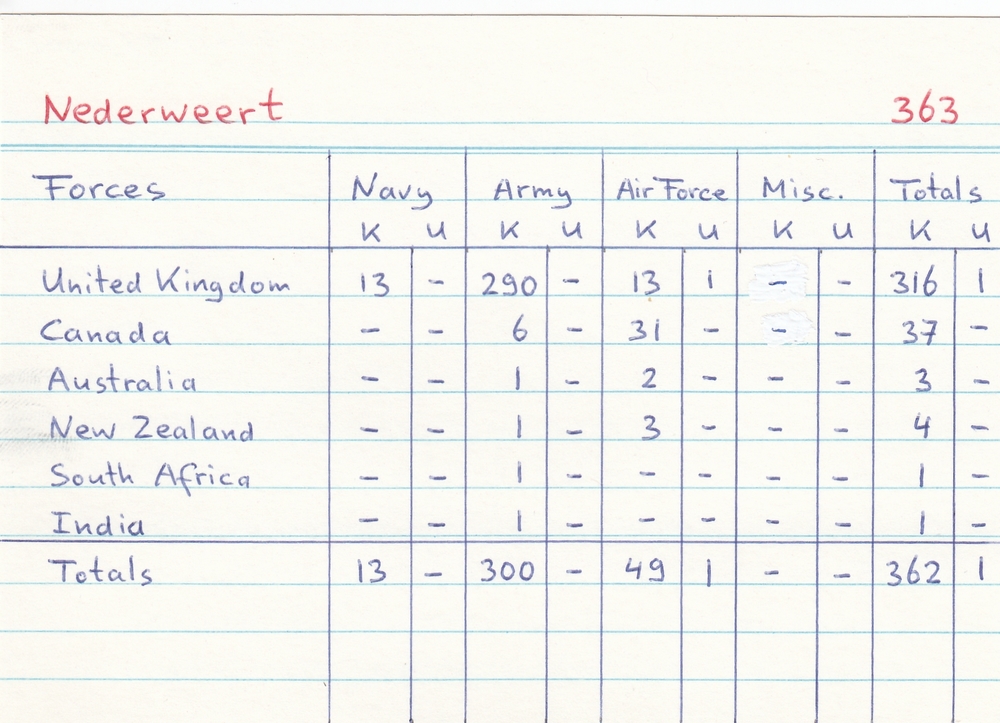 Nederweert 363
Forces Navy Army Air Force Misc. Totals
K U K U K U K U K U
United Kingdom 13 - 290 - 13 1 - - 316 1
Canada - - 6 - 31 - - - 37 -
Australia - - 1 - 2 - - - 3 -
New Zealand - - 1 - 3 - - - 4 -
South Africa - - 1 - - - - - 1 -
India - - 1 - - - - - 1 -
Totals 13 - 300 - 49 1 - - 362 1